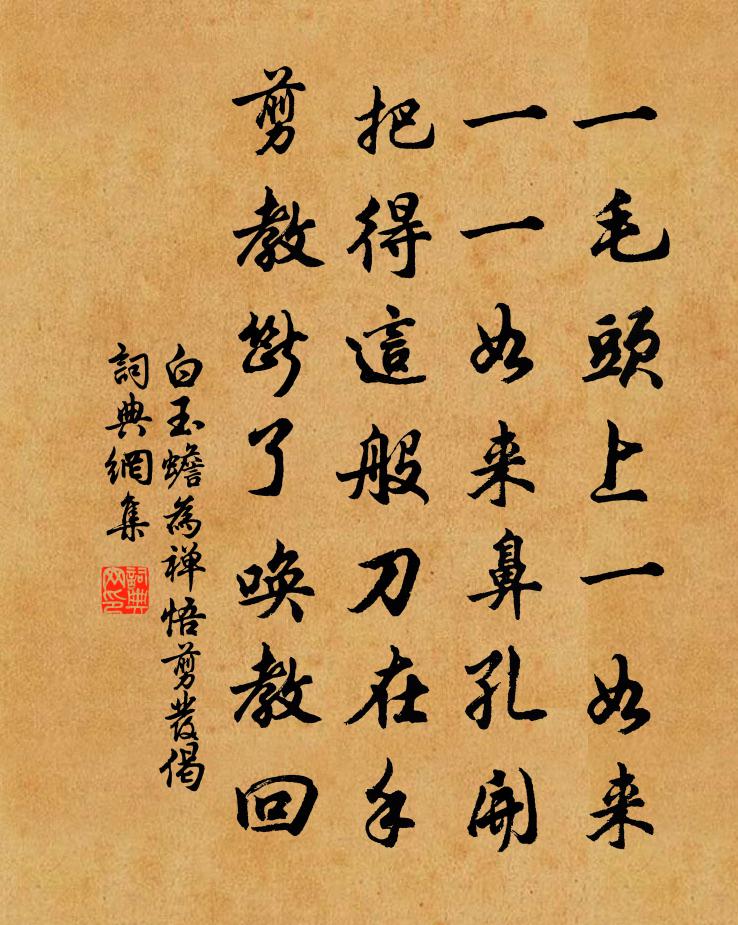 一毛頭上一如来
一一如来鼻孔開
把得這般刀在手
剪教斷了喚教回
白玉蟾為禅悟剪髮偈
詞典網集
詞典網印